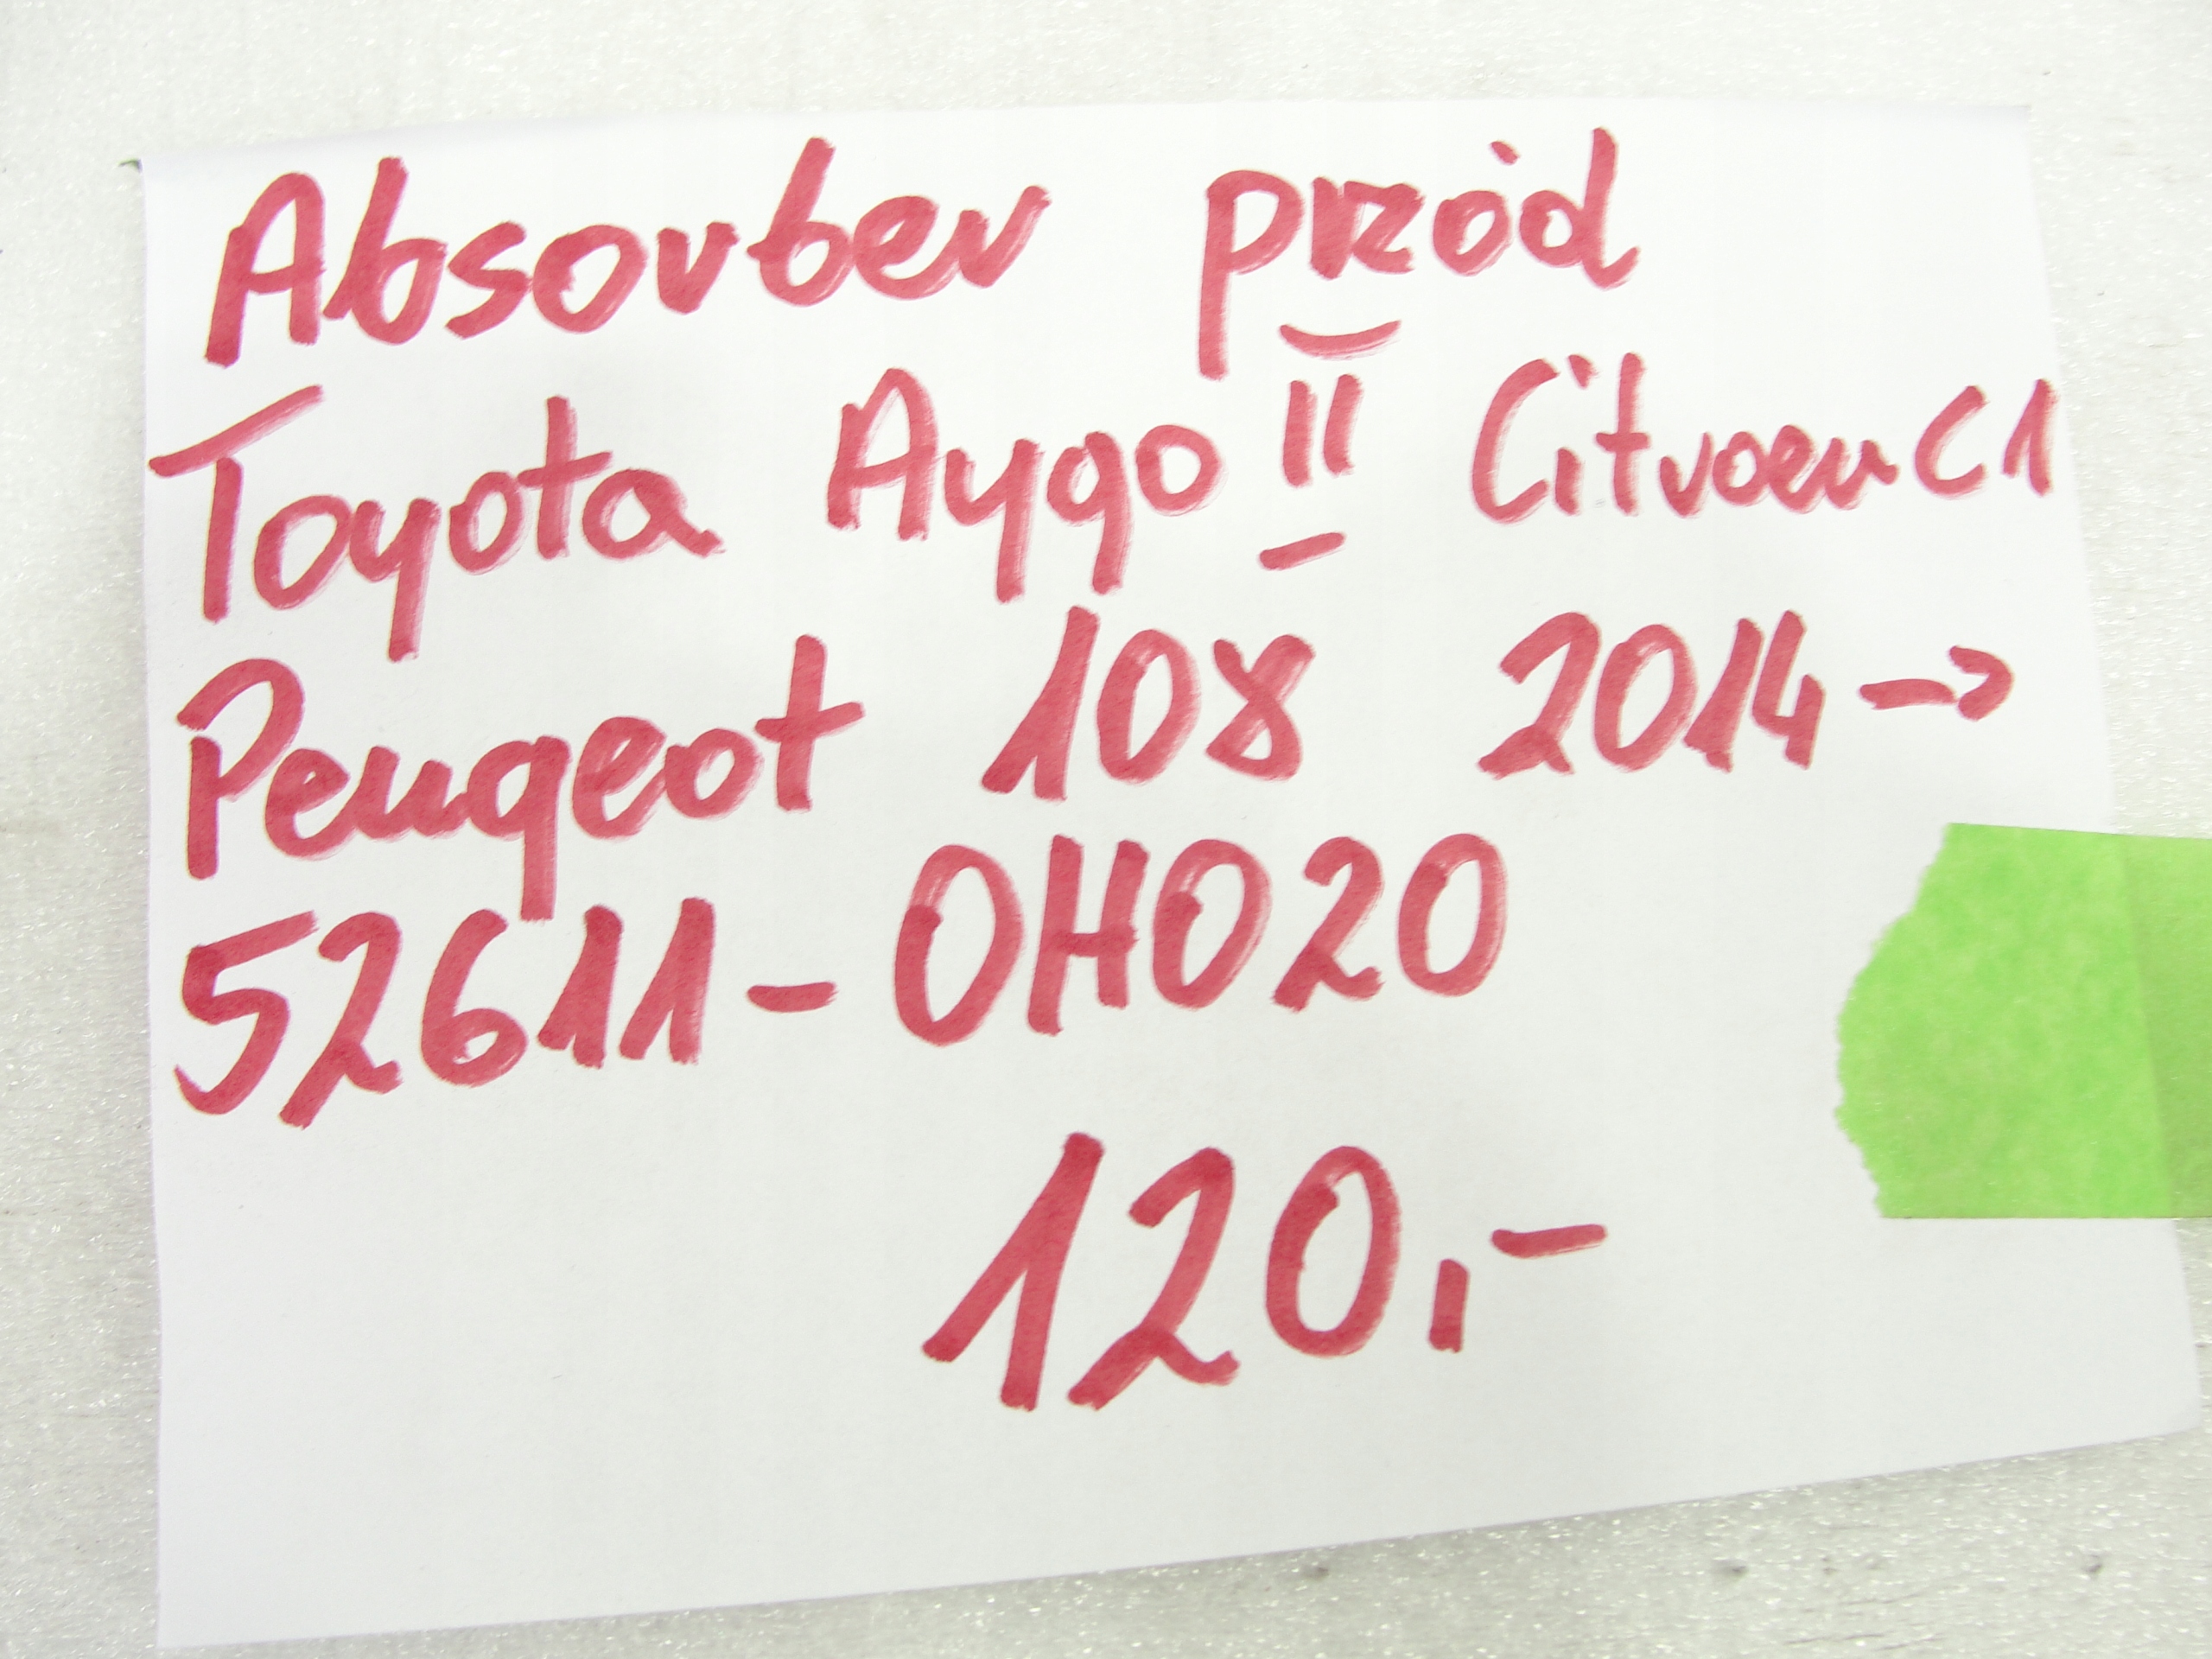 Absorber przód
Toyota Aygo II Citroen C1
Peugeot 108 2014->
52611-0H020
120,-